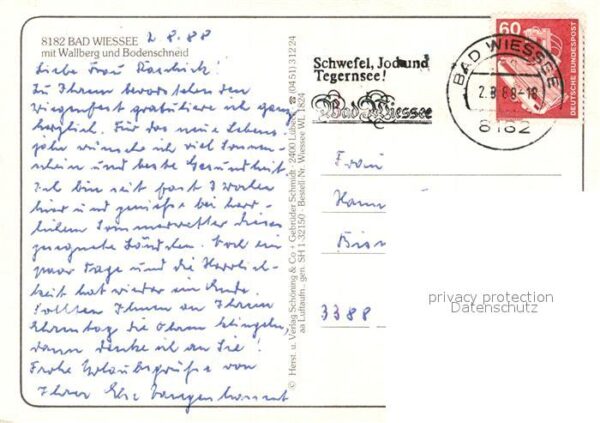 8182 BAD WIESSEE
mit Wallberg und Bodenschneid
2.8.88
Liebe Frau
Zu Ihrem bevorstehenden
Wiegenfest gratuliere ich ganz
herzlich. Für das neue Lebens-
jahr wünsche ich viel Sonnen-
schein und beste Gesundheit.
Ich bin seit fast 3 Wochen
hier und genieße bei herr-
lichem Sommerwetter dieses
gesegnete Ländchen. Noch ein
paar Tage und die Herrlich-
keit hat wieder ein Ende.
Sollten Ihnen an Ihrem
Ehrentag die Ohren klingeln,
dann denke ich an Sie!
Frohe Urlaubsgrüße von
Ihrer Else
© Herst. u. Verlag Schöning & Co + Gebrüder Schmidt · 2400 Lübeck ☎ (0451) 31224
aa Luftaufn., gen. SH 1-32150 · Bestell-Nr. Wiessee WL 1824
Schwefel, Jod und
Tegernsee!
Bad Wiessee
BAD WIESSEE
2.8.88-18
8182
60
DEUTSCHE BUNDESPOST
Frau
3388
privacy protection
Datenschutz